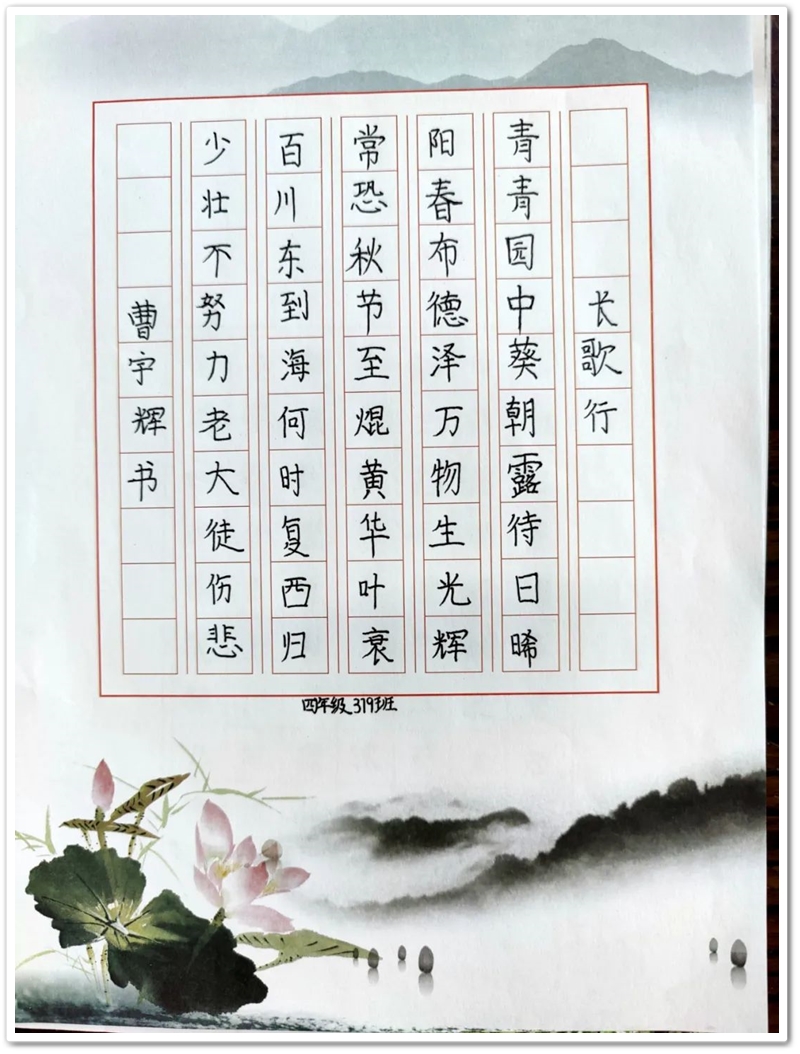 长歌行
青青园中葵朝露待日晞
阳春布德泽万物生光辉
常恐秋节至焜黄华叶衰
百川东到海何时复西归
少壮不努力老大徒伤悲
曹宇辉书
四年级319班